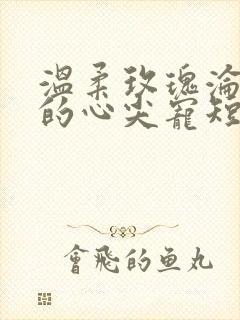 溫柔玫瑰淪
的心尖寵短
會飛的鱼丸